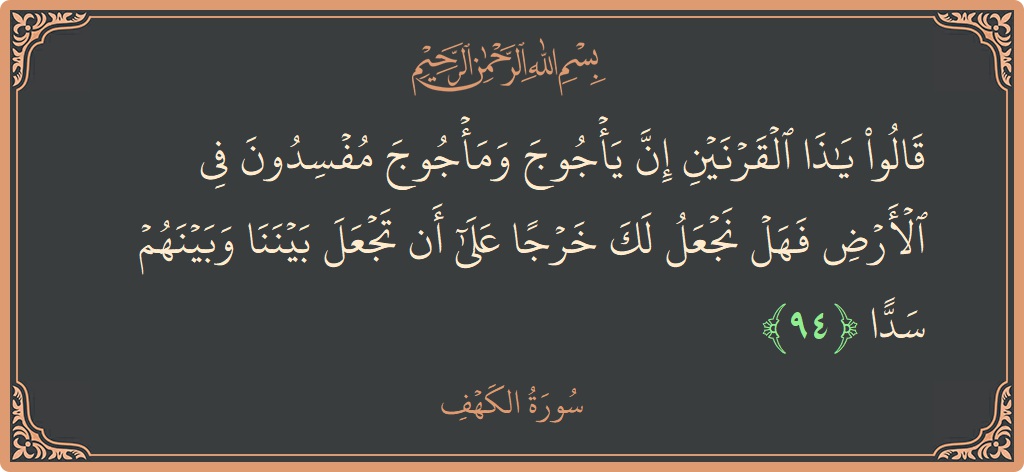 بِسْمِ اللَّهِ الرَّحْمَٰنِ الرَّحِيمِ
قَالُوا۟ يَـٰذَا ٱلْقَرْنَيْنِ إِنَّ يَأْجُوجَ وَمَأْجُوجَ مُفْسِدُونَ فِى
ٱلْأَرْضِ فَهَلْ نَجْعَلُ لَكَ خَرْجًا عَلَىٰٓ أَن تَجْعَلَ بَيْنَنَا وَبَيْنَهُمْ
سَدًّا ﴿٩٤﴾
سُورَةُ الكَهْفِ